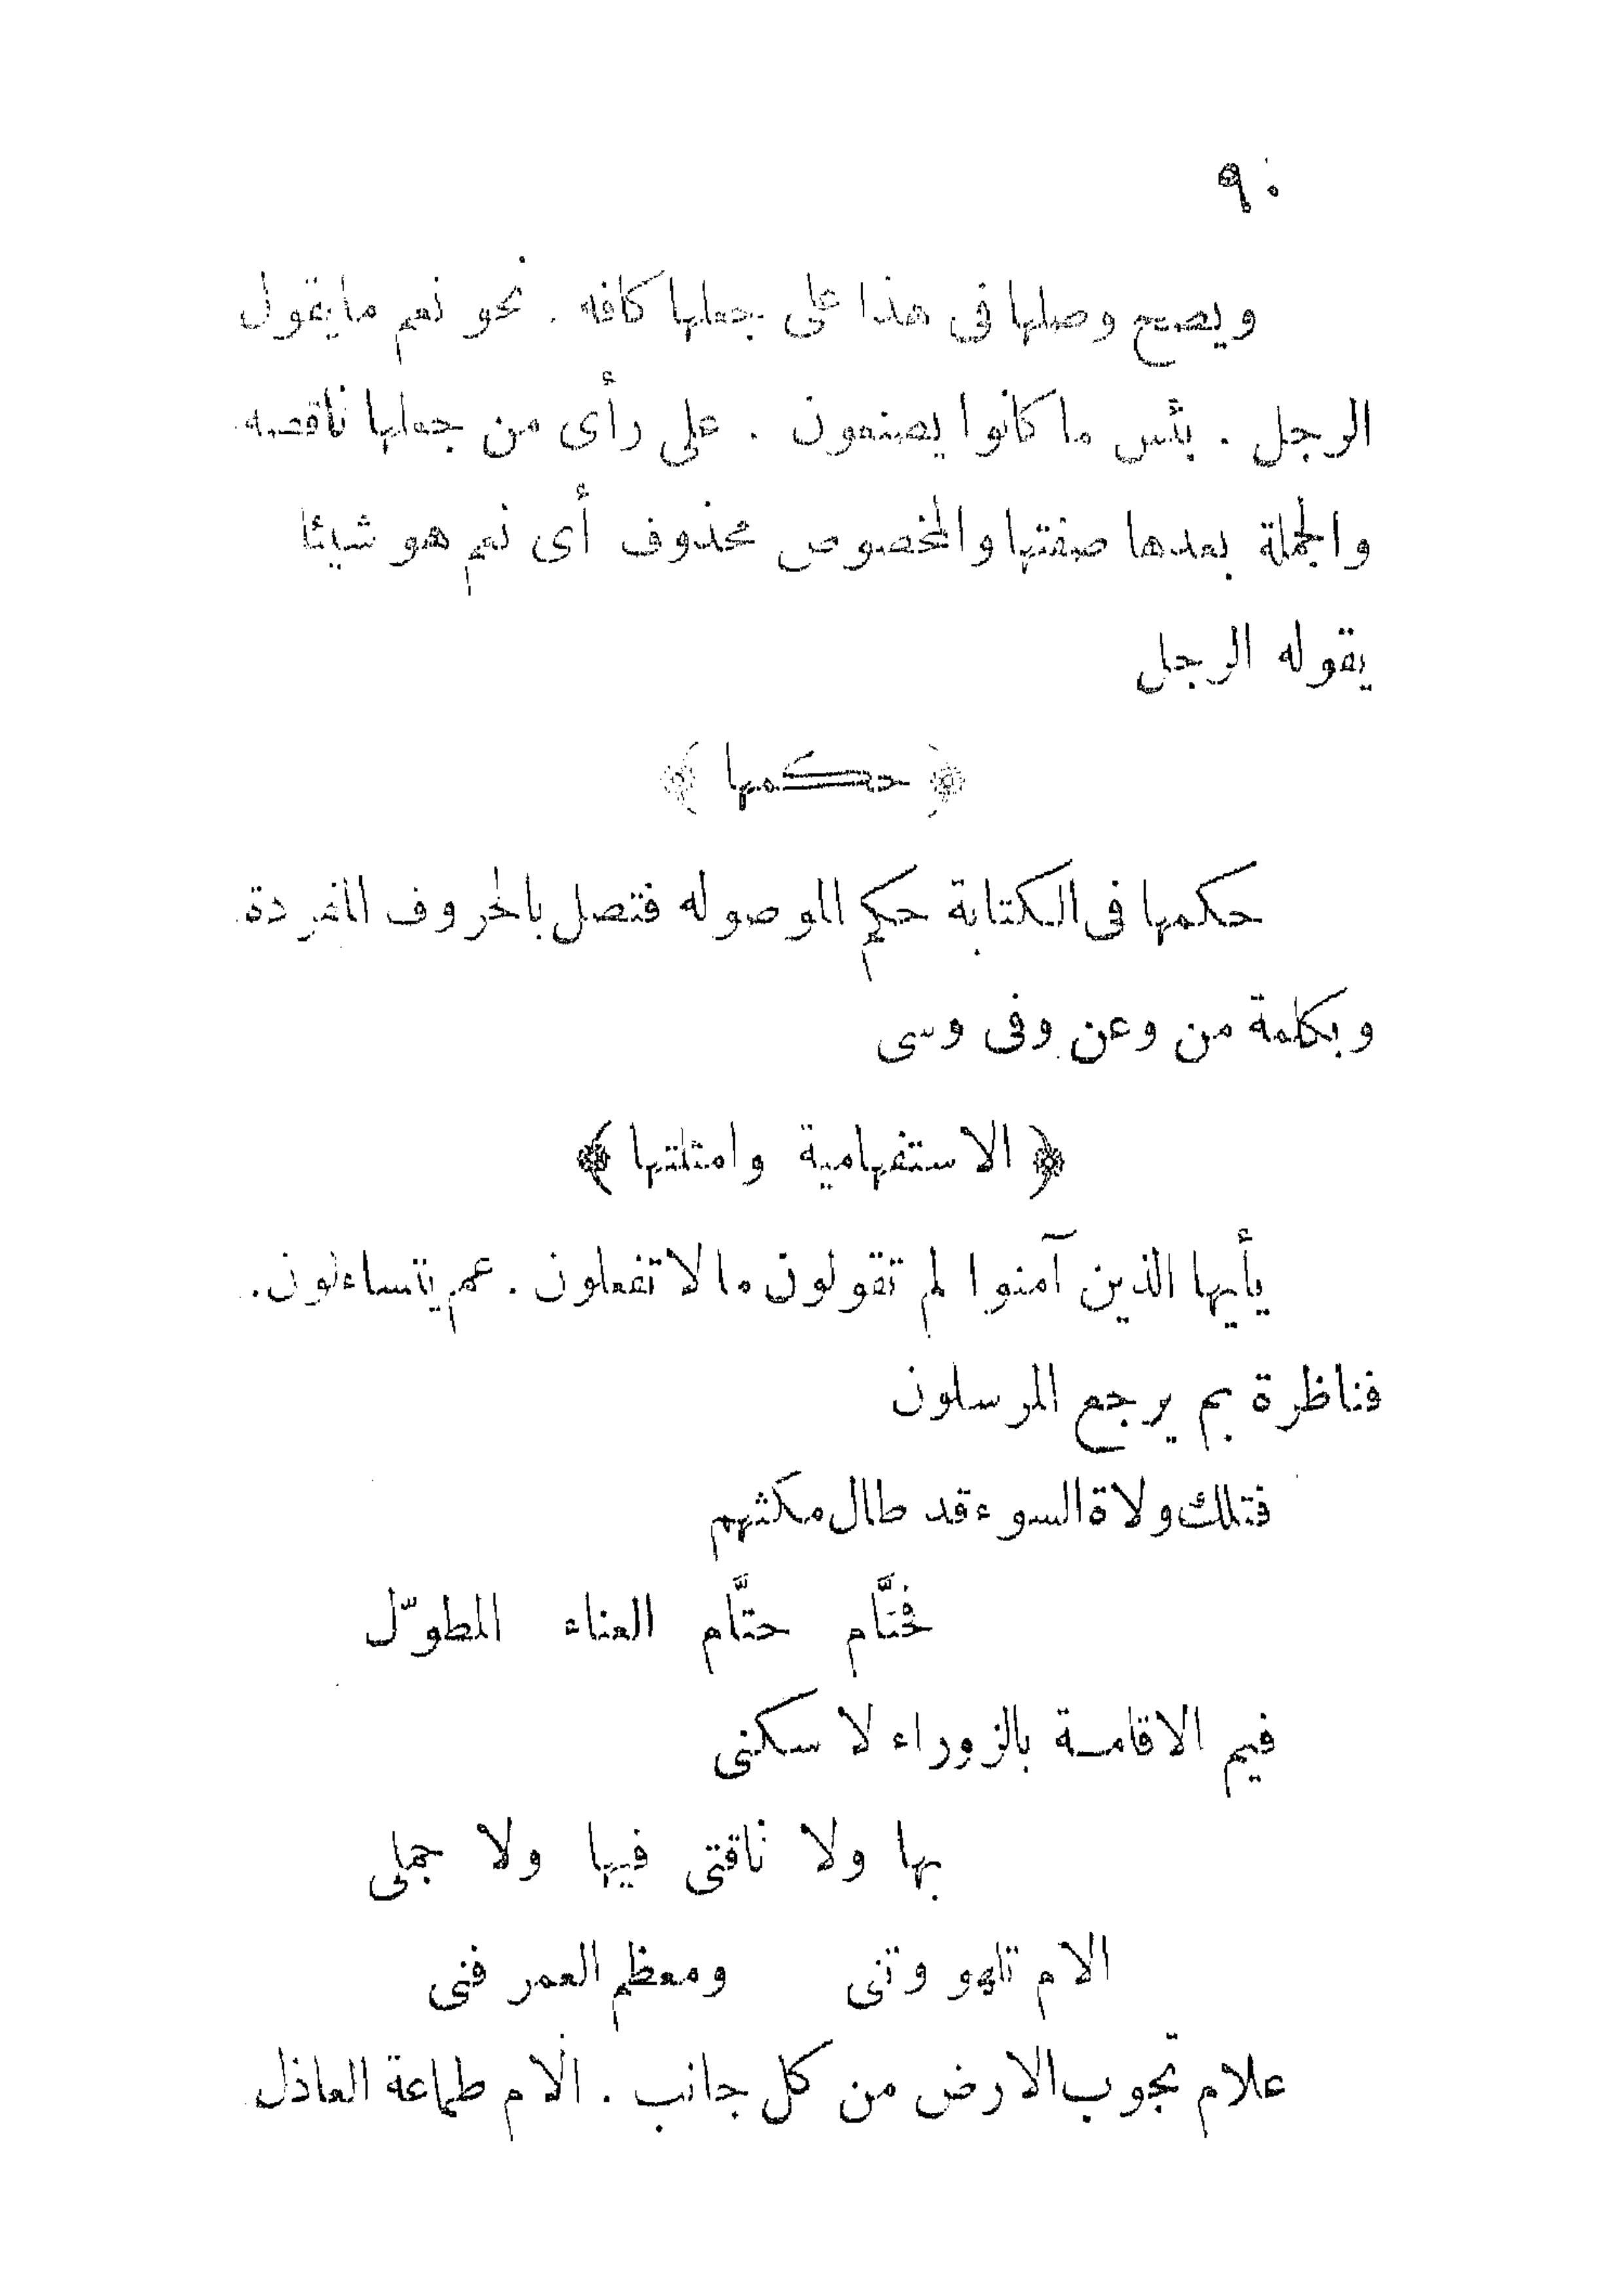 ٩٠
ويصح وصلها فى هذا على جعلها كافه . نحو نعم مايقول
الرجل . بئس ما كانوا يصنعون . على رأى من جعلها ناقصه
والجملة بعدها صفتها والمخصوص محذوف أى نعم هو شيئا
يقوله الرجل
﴿ حكمها ﴾
حكمها فى الكتابة حكم الموصوله فتصل بالحروف المفردة
وبكلمة من وعن وفى وسى
﴿ الاستفهامية وامثلتها ﴾
يأيها الذين آمنوا لم تقولون مالاتفعلون . عم يتساءلون .
فناظرة بم يرجع المرسلون
فتلك ولاة السوء قد طال مكثهم
فحتَّام حتَّام العناء المطوّل
فيم الاقامة بالزوراء لا سكنى
بها ولا ناقتى فيها ولا جملى
الام تلهو وتنى ومعظم العمر فنى
علام تجوب الارض من كل جانب . الام طماعة العاذل